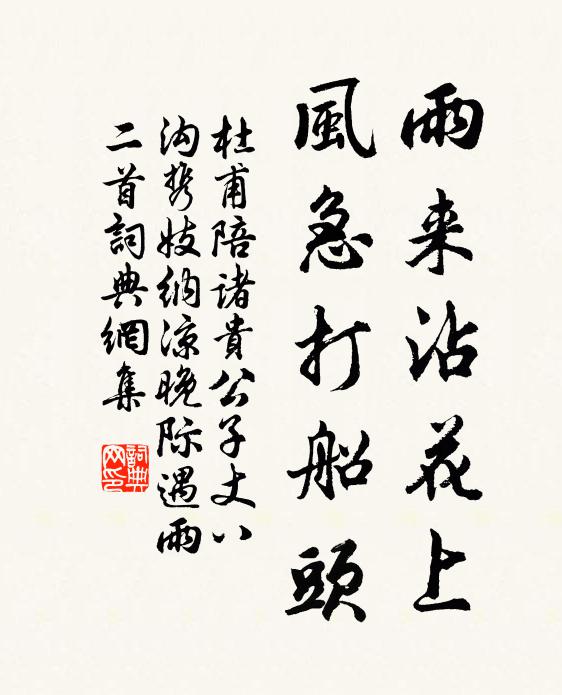 雨来沾花上
風急打船頭
杜甫陪諸貴公子丈八
沟携妓納凉晚际遇雨
二首詞典網集
詞典
网印